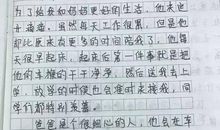 为了给我和妈妈更好的生活,他来也
十 虽然每天工作很累,但是他
却比原来有更多的时间陪我了。他每
天很早起床,起床后第一件事就是把
他的车擦的干干净净,然后送我去上
学,放学的时候也会准时来接我,同
学们都特别羡慕。
爸爸是个很细心的人,他会在车